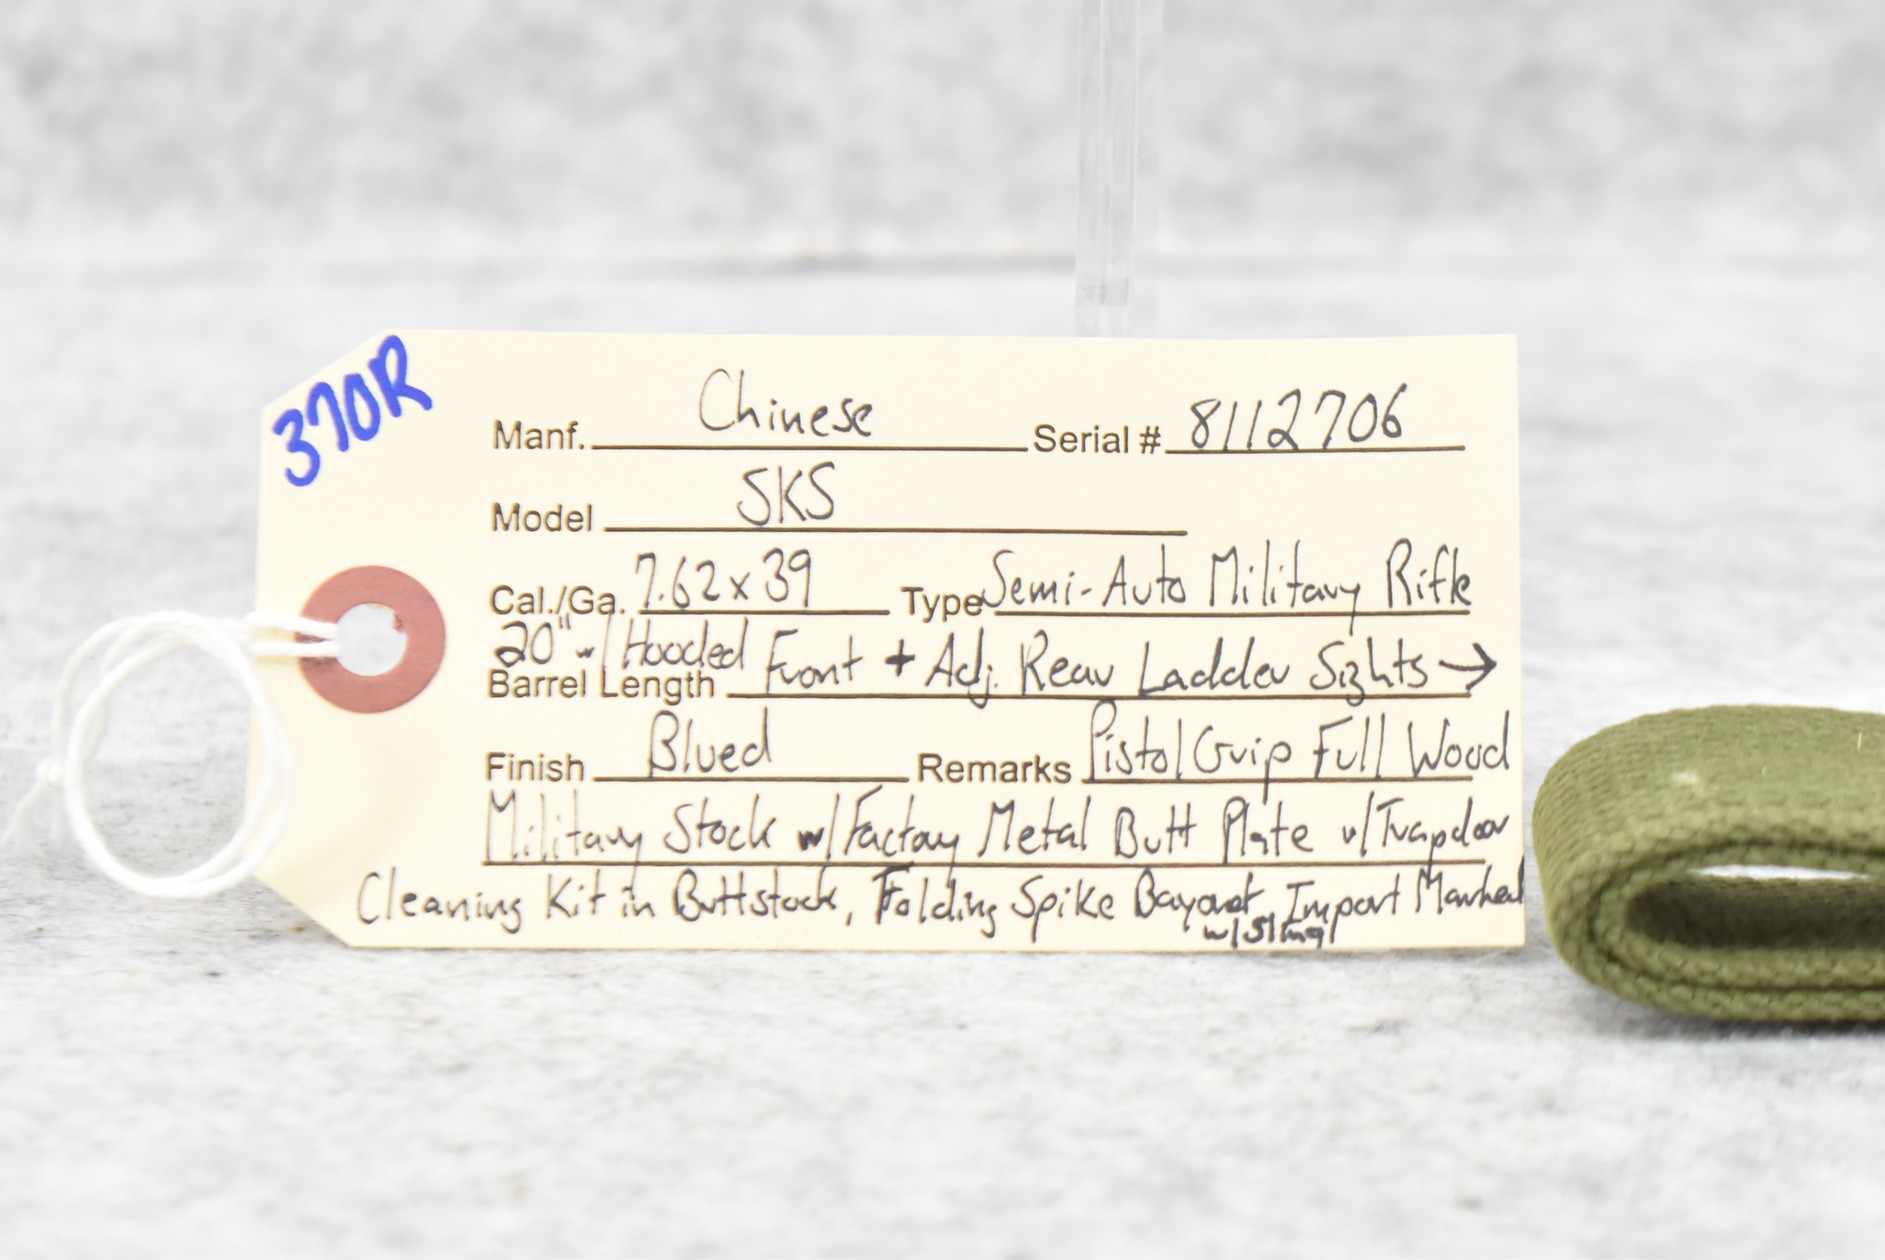 370R
Manf. Chinese Serial # 8112706
Model SKS
Cal./Ga. 7.62x39 Type Semi-Auto Military Rifle
20" w/ Hooded Front + Adj. Rear Ladder Sights →
Barrel Length
Finish Blued Remarks Pistol Grip Full Wood
Military Stock w/ Factory Metal Butt Plate w/ Trapdoor
Cleaning Kit in Buttstock, Folding Spike Bayonet, Import Marked
w/ Sling